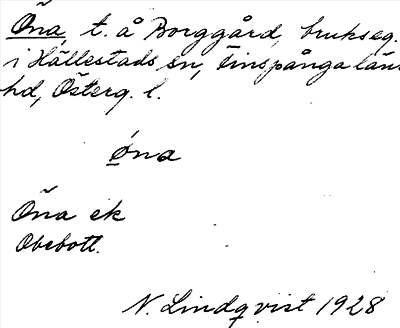 Öna, t. å Borggård, brukseg.
i Hällestads sn, Finspånga län
hd, Österg. l.
øna
Öna ek
Obebott.
N. Lindqvist 1928